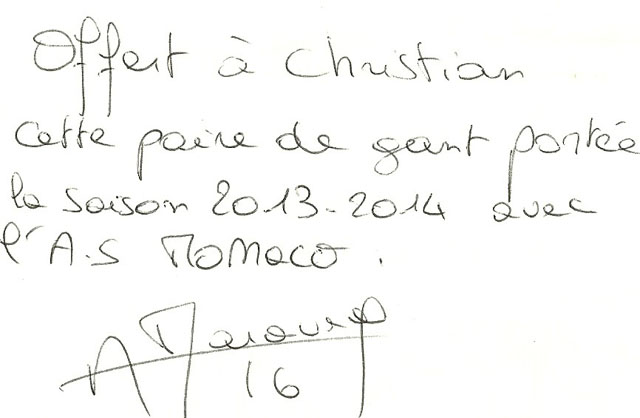 Offert à Christian
cette paire de gant portée
la saison 2013-2014 avec
l'A.S Monaco.
16